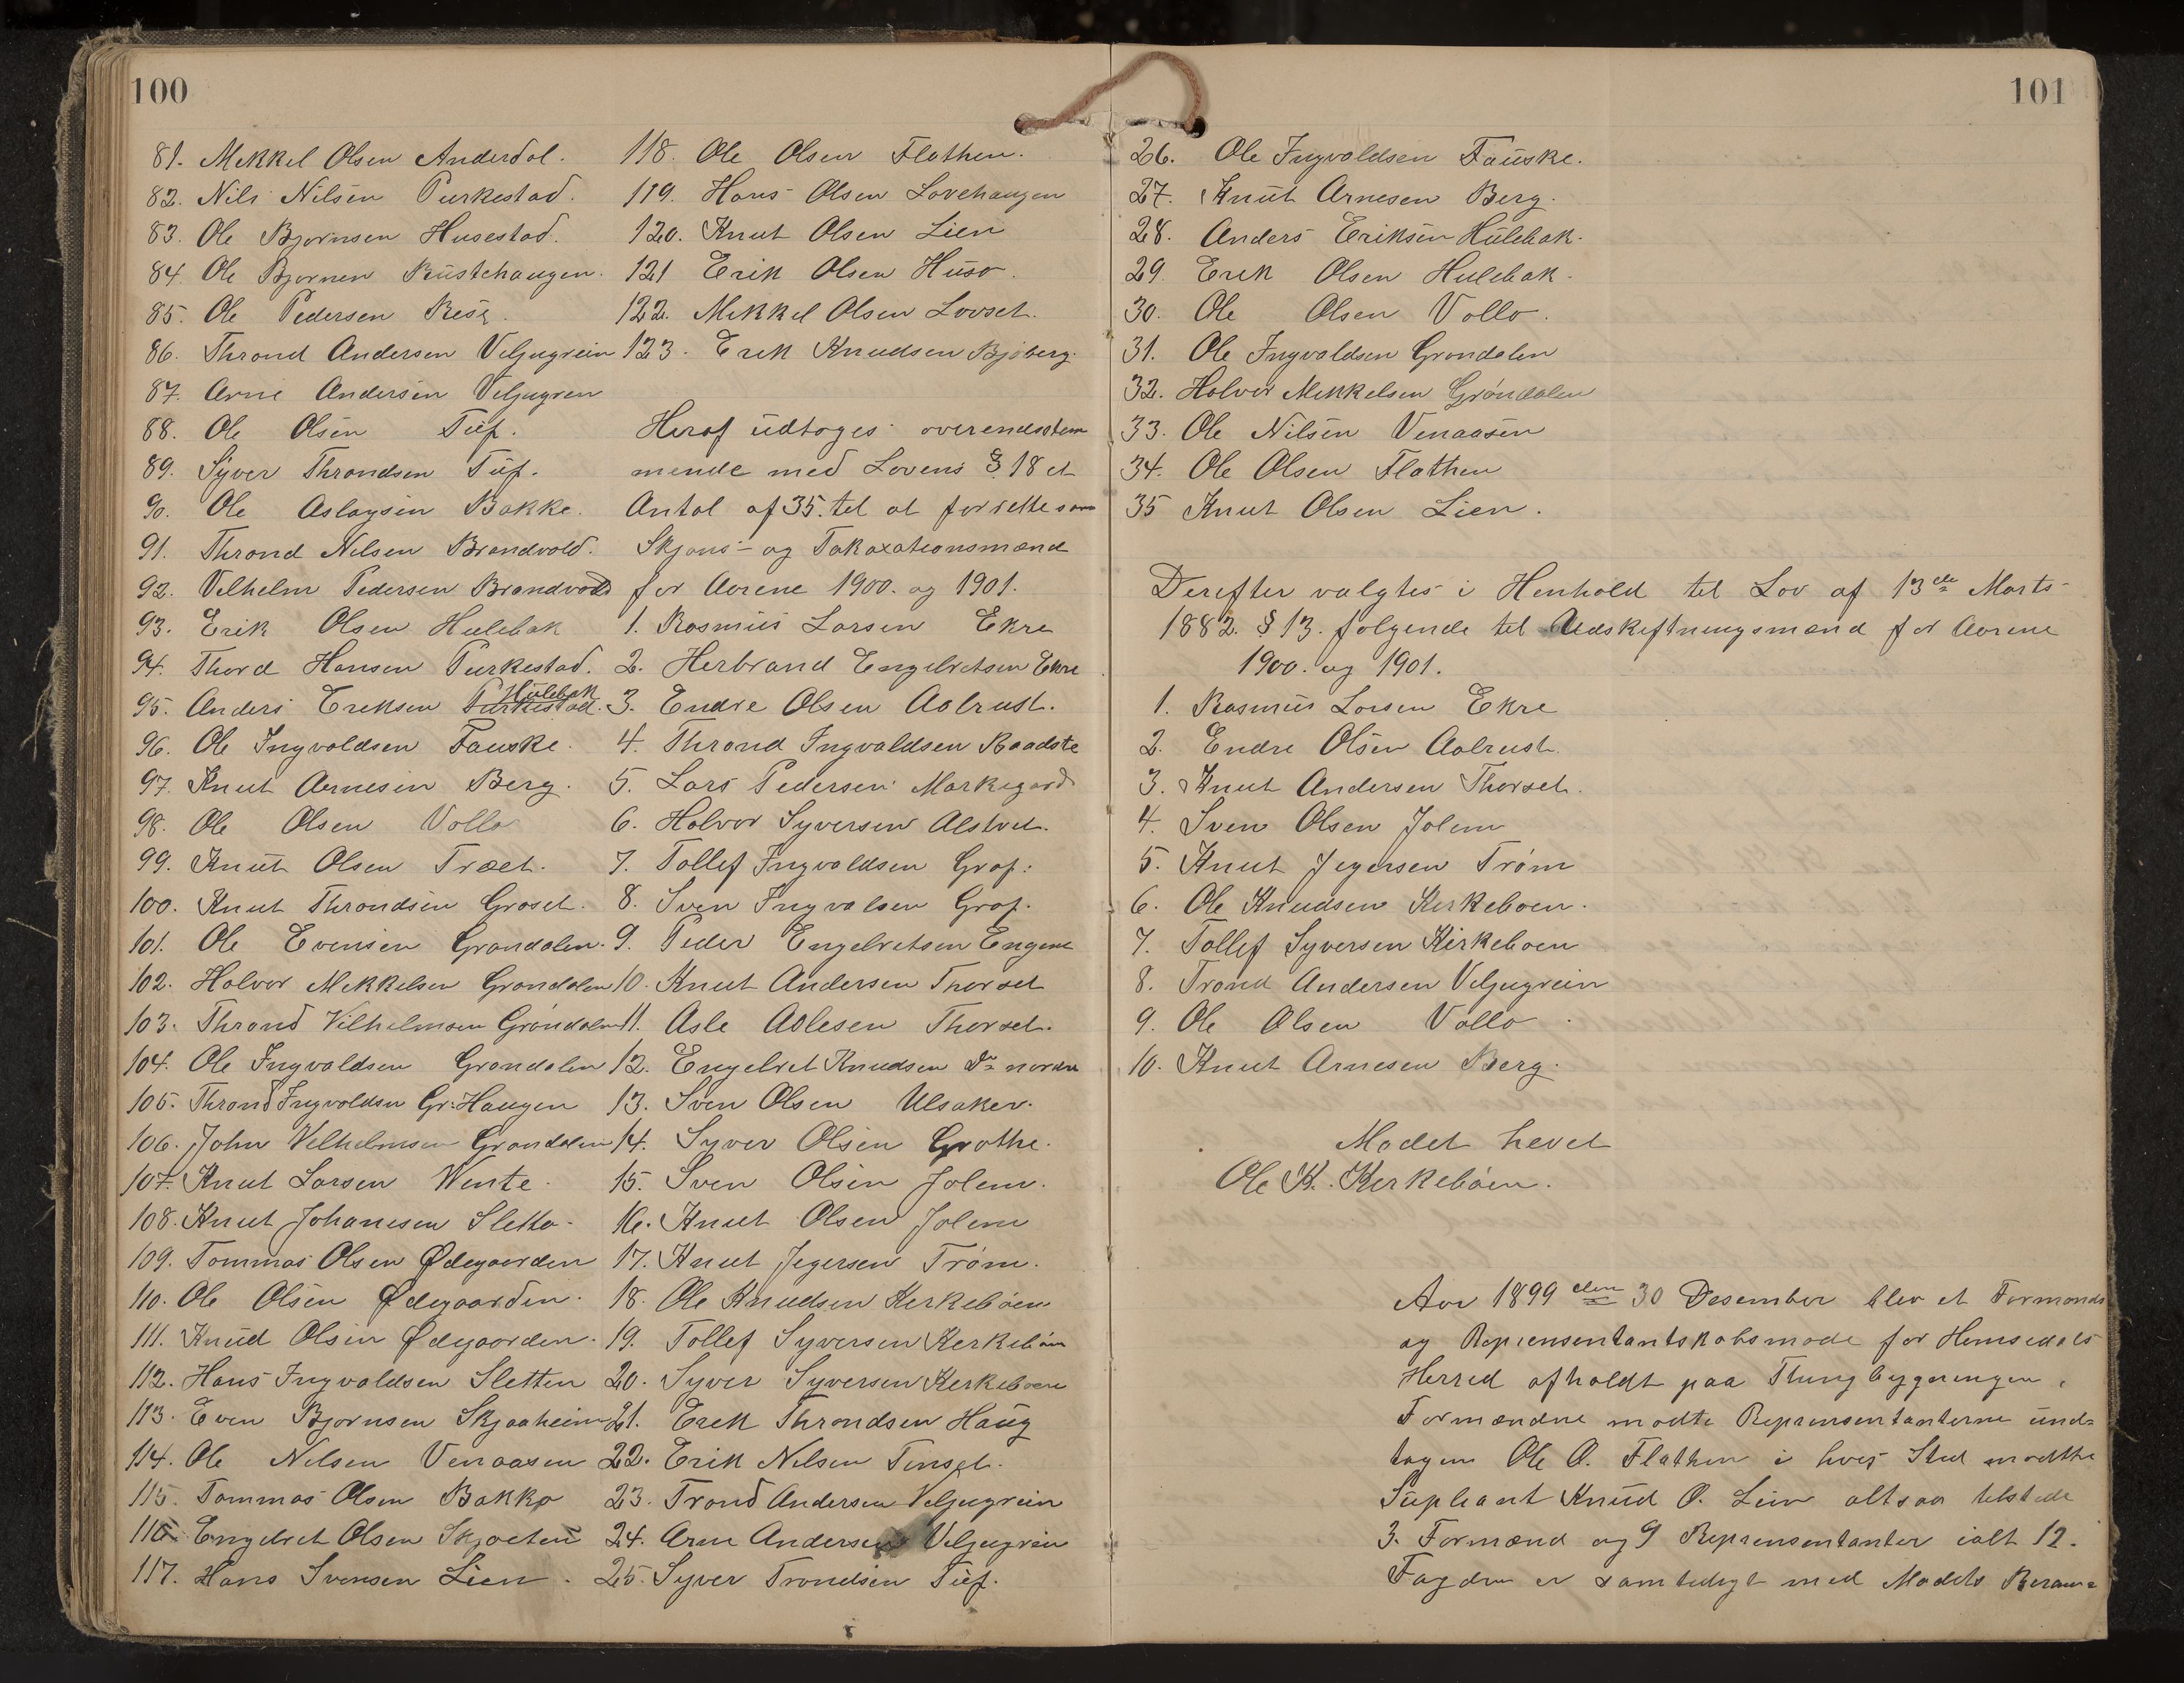 100
81. Mekkel Olsen Anderdal.
82. Nils Nilsen Purkestad.
83. Ole Bjørnsen Husestad.
84. Ole Bjørnen Rustehaugen.
85. Ole Pedersen
86. Thrond Andersen Veljugrein
87. Arne Andersen Veljugren
88. Ole Olsen Tuf.
89. Syver Throndsen Tuf.
90. Ole Aslagsen Bakke.
91. Thrond Nilsen Brandvold.
92. Velhelm Pedersen Brandvold
93. Erik Olsen Hulebak
94. Thord Hansen Purkestad.
95. Anders Eriksen Purkestad. Hulebak
96. Ole Ingvaldsen Fauske.
97. Knut Arnesen Berg.
98. Ole Olsen Vollo
99. Knut Olsen Træet.
100. Knut Throndsen Groset.
101. Ole Evensen Grøndalen.
102. Halvor Mekkelsen Grøndalen
103. Thrond Vilhelmsen Grøndalen
104. Ole Ingvaldsen Grøndalen
105. Thrond Ingvoldsen Gr. Haugen
106. John Velhelmsen Grøndalen
107. Knut Larsen Wente.
108. Knut Johanesen Sletto.
109. Tommas Olsen Ødegaarden
110. Ole Olsen Ødegaarden.
111. Knud Olsen Ødegaarden.
112. Hans Ingvaldsen Sletten
113. Even Bjørnsen Skjaaheim
114. Ole Nelsen Venaasen
115. Tommas Olsen Bakko
116. Engebret Olsen
117. Hans Svensen Lien.
118. Ole Olsen Flathen.
119. Hans Olsen Løvehaugen
120. Knut Olsen Lien
121 Erik Olsen Huso.
122. Mekkel Olsen Løvset.
123. Erek Knudsen Bjøberg.
Heraf udtoges overendsstem
mende med Lovens § 18 et
Antal af 35. tel at forrette som
Skjøns- og Takaxationsmænd
for Aarene 1900. og 1901.
1. Rasmus Larsen Ekre
2. Herbrand Engebretsen Ekre
3. Endre Olsen Aalrust.
4. Thrond Ingvaldsen Raadste
5. Lars Pedersen Markegard
6. Halvor Syversen Alstvet.
7. Tollef Ingvaldsen Grøf.
8. Sven Ingvalsen Grøf.
9. Peder Engebretsen Engene
10. Knut Andersen Thorset
11. Asle Aslesen Thorset.
12. Engebret Knudsen Do nordre
13. Sven Olsen Ulsaker.
14. Syver Olsen Grøthe.
15. Sven Olsen Jolem.
16. Knut Olsen Jolem
17. Knut Jegersen Trøm.
18. Ole Knudsen Kerkebøen
19. Tollef Syversen Kerkebøen
20. Syver Syversen Kerkebøen
21. Erek Throndsen Haug
22. Erik Nelsen Tinset.
23. Trond Andersen Veljugrein
24. Arne Andersen Veljugrein
25. Syver Trondsen Tuf.
101
26. Ole Ingvaldsen Fauske.
27. Knut Arnesen Berg.
28. Anders Eriksen Hulebak.
29. Erek Olsen Hulebak.
30. Ole Olsen Vollo.
31. Ole Ingvaldsen Grøndalen
32. Halvor Mekkelsen Grøndalen
33. Ole Nilsen Venaasen
34. Ole Olsen Flathen
35 Knut Olsen Lien.
Derefter valgtes i Henhold tel Lov af 13de Marts
1882. § 13. følgende tel Udskeftningsmænd for Aarene
1900. og 1901.
1. Rasmus Larsen Ekre
2. Endre Olsen Aalrust.
3. Knut Andersen Thorset.
4. Sven Olsen Jolem
5. Knut Jegersen Trøm
6. Ole Knudsen Kerkebøen.
7. Tollef Syversen Kirkebøen
8. Trond Andersen Veljugrein
9. Ole Olsen Vollo
10. Knut Arnesen Berg.
Mødet hevet
Ole K. Kerkebøen.
Aar 1899 den 30 Desember blev et Formands
og Reprensentantskabsmøde for Hemsedals
Herred afholdt paa Thingbygningen.
Formændne mødte Reprensentanterne und=
tagen Ole O. Flathen i hves Sted mødthe
Supleant Knud O. Lien altsaa telstede
3. Formænd og 9 Reprensentanter ialt 12.
er samtedegt med Mødets Beram=